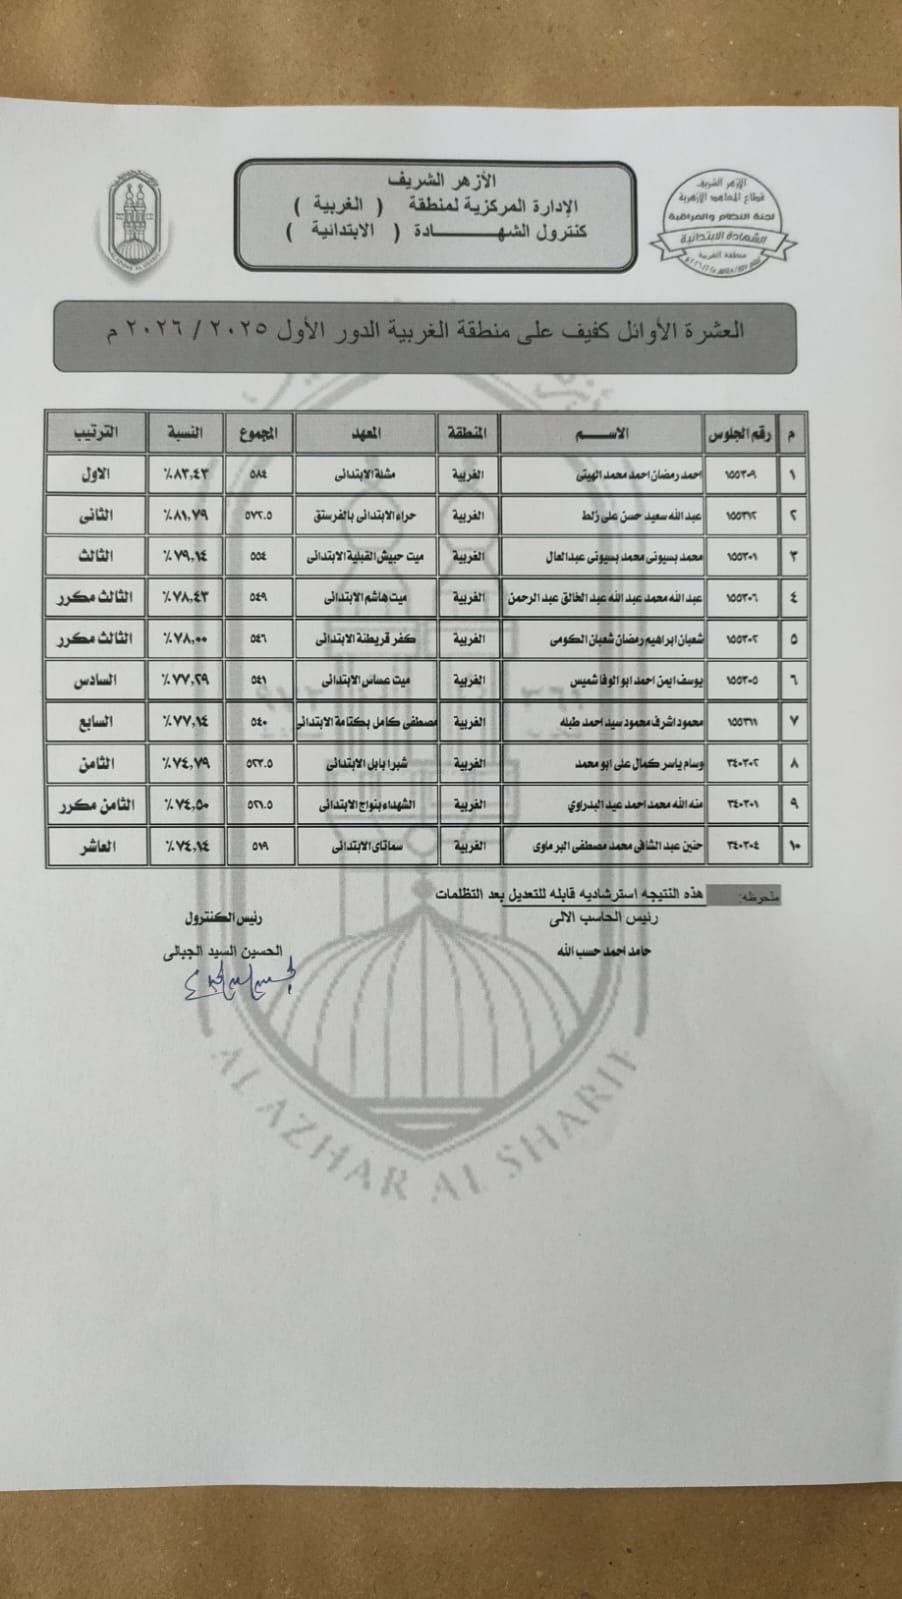 الأزهر الشريف
الإدارة المركزية لمنطقة ( الغربية )
كنترول الشهـــــــادة ( الابتدائية )
الأزهر الشريف
قطاع المعاهد الأزهرية
لجنة النظام والمراقبة
الشهادة الابتدائية
منطقة الغربية
العشرة الأوائل كفيف على منطقة الغربية الدور الأول ٢٠٢٥ / ٢٠٢٦ م
م رقم الجلوس الاســـم المنطقة المعهد المجموع النسبة الترتيب
١ ١٥٥٣٠٩ احمد رمضان احمد محمد الهيتى الغربية مشلة الابتدائى ٥٨٤ ٨٣,٤٣٪ الاول
٢ ١٥٥٣١٢ عبدالله سعيد حسن على زلط الغربية حراء الابتدائى بالفرستق ٥٧٢.٥ ٨١,٧٩٪ الثانى
٣ ١٥٥٣٠١ محمد بسيونى محمد بسيونى عبدالعال الغربية ميت حبيش القبلية الابتدائى ٥٥٤ ٧٩,١٤٪ الثالث
٤ ١٥٥٣٠٦ عبد الله محمد عبد الله عبد الخالق عبد الرحمن الغربية ميت هاشم الابتدائى ٥٤٩ ٧٨,٤٣٪ الثالث مكرر
٥ ١٥٥٣٠٢ شعبان ابراهيم رمضان شعبان الكومى الغربية كفر قريطنة الابتدائى ٥٤٦ ٧٨,٠٠٪ الثالث مكرر
٦ ١٥٥٣٠٥ يوسف ايمن احمد ابو الوفا شميس الغربية ميت عساس الابتدائى ٥٤١ ٧٧,٢٩٪ السادس
٧ ١٥٥٣١١ محمود اشرف محمود سيد احمد طبله الغربية مصطفى كامل بكتامة الابتدائى ٥٤٠ ٧٧,١٤٪ السابع
٨ ٣٤٠٣٠٢ وسام ياسر كمال على ابو محمد الغربية شبرا بابل الابتدائى ٥٢٣.٥ ٧٤,٧٩٪ الثامن
٩ ٣٤٠٣٠١ منه الله محمد احمد عيد البدراوي الغربية الشهداء بنواج الابتدائى ٥٢١.٥ ٧٤,٥٠٪ الثامن مكرر
١٠ ٣٤٠٣٠٤ حنين عبد الشافى محمد مصطفى البرماوى الغربية سماتاى الابتدائى ٥١٩ ٧٤,١٤٪ العاشر
ملحوظه: هذه النتيجه استرشاديه قابله للتعديل بعد التظلمات
رئيس الحاسب الالى رئيس الكنترول
حامد احمد حسب الله الحسين السيد الجبالى
AL AZHAR AL SHARIF